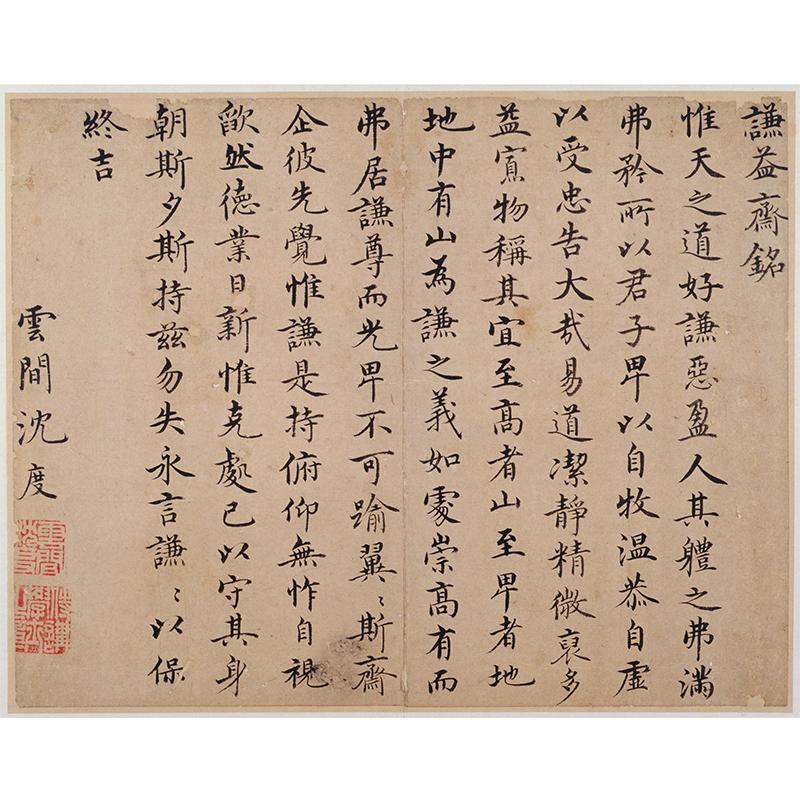 謙益齋銘
惟天之道好謙惡盈人其軆之弗滿
弗矜所以君子卑以自牧温恭自虛
以受忠告大哉易道潔靜精微裒多
益寡物稱其宜至髙者山至卑者地
地中有山為謙之義如處崇髙有而
弗居謙尊而光卑不可踰翼〻斯齋
企彼先覺惟謙是持俯仰無怍自視
歉然德業日新惟克處已以守其身
朝斯夕斯持茲勿失永言謙〻以保
終吉
雲間沈度